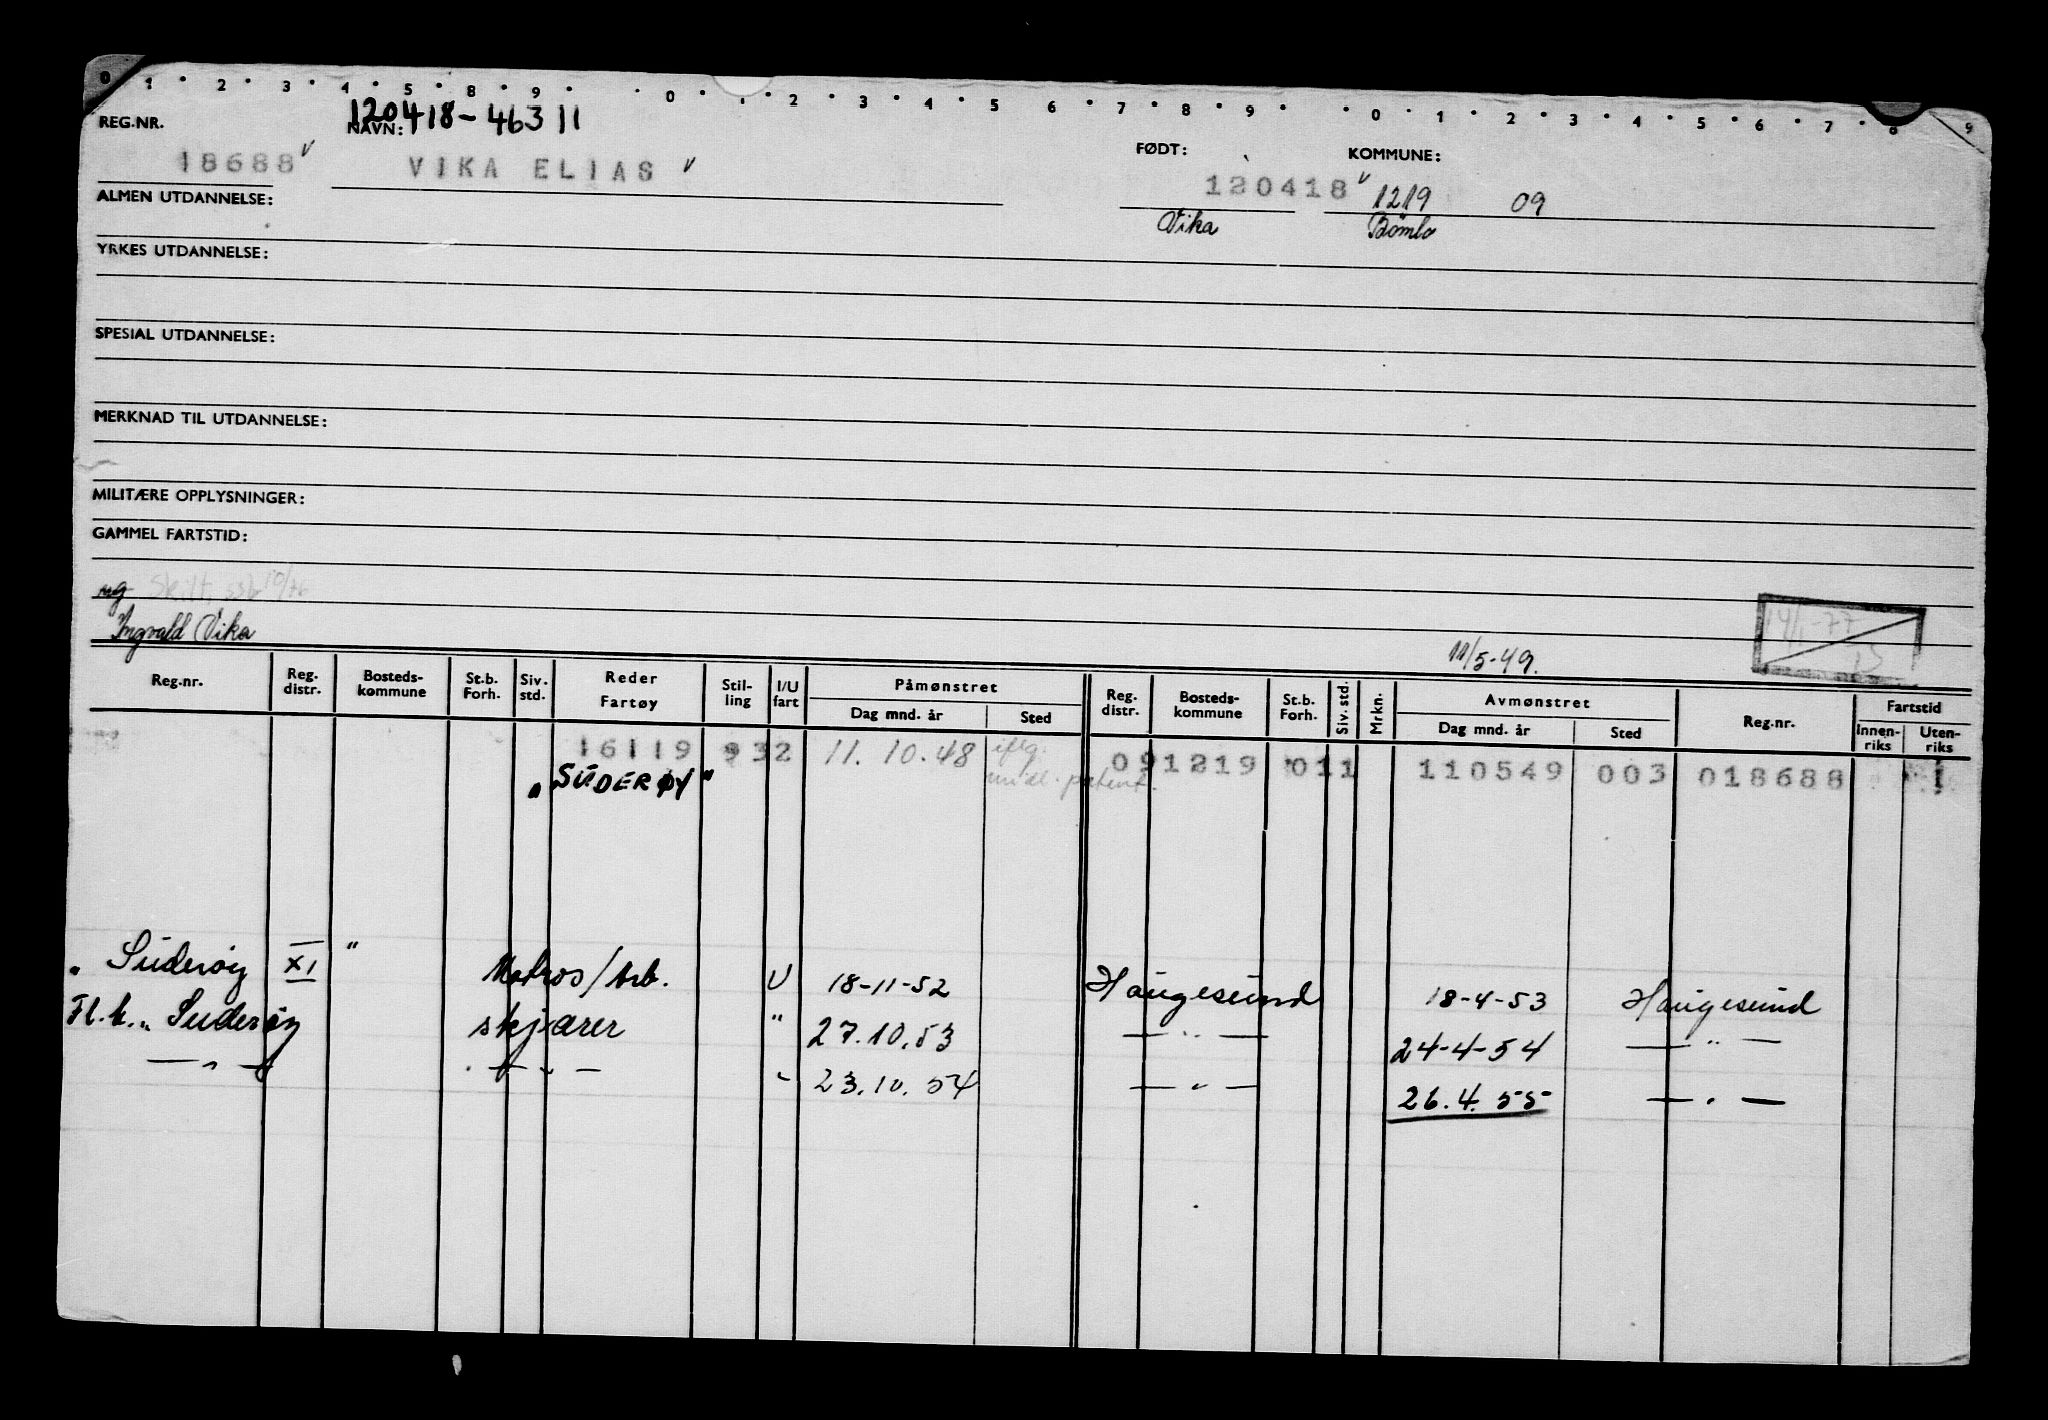 0 1 2 3 4 5 6 7 8 9 0 1 2 3 4 5 6 7 8 9 0 1 2 3 4 5 6 7 8 9
120418-46311
REG.NR. NAVN: FØDT: KOMMUNE:
18688 V VIKA ELIAS V 120418 V 1219 09
Vika Bömlo
ALMEN UTDANNELSE:
YRKES UTDANNELSE:
SPESIAL UTDANNELSE:
MERKNAD TIL UTDANNELSE:
MILITÆRE OPPLYSNINGER:
GAMMEL FARTSTID:
ug Skilt 10/76
14/1-77
Ingvald Vika 11/5-49.
Reg.nr. Reg. distr. Bosteds-kommune St.b. Forh. Siv. std. Reder Fartøy Stil-ling I/U fart Påmønstret Dag mnd. år Sted Reg. distr. Bosteds-kommune St.b. Forh. Siv. std. Mrkn. Avmønstret Dag mnd. år Sted Reg.nr. Fartstid Innen-riks Uten-riks
16119 932 11.10.48 iflg. 091219 011 110549 003 018688 1
„SUDERØY" patent.
" Suderøy XI " Matros/Arb. U 18-11-52 Haugesund 18-4-53 Haugesund
Fl.k. „Suderøy skjærer " 27.10.53 — " — 24-4-54 — " —
— " — — " — " 23.10.54 — " — 26.4.55 — " —